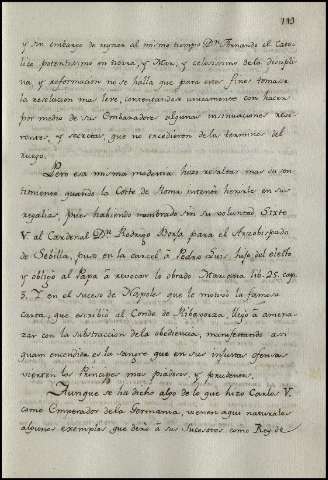 113
y sin embargo de reynar al mismo tiempo Dn. Fernando el Cato-
lico, potentisimo en tierra, y Mar, y celosisimo de la discipli-
na, y reformacion no se halla que para estos fines tomase
la resolucion mas leve, contentandose unicamente con hacer
por medio de sus Embaxadores algunas insinuaciones reve-
rentes, y secretas, que no excedieron de la terminos del
ruego.
Pero esa misma modestia hizo resaltar mas su sen-
timiento quando la Corte de Roma intentó herirle en sus
regalias; pues habiendo nombrado sin su voluntad Sixto
V. al Cardenal Dn. Rodrigo Borja para el Arzobispado
de Sebilla, puso en la carcel á Pedro Luis, hijo del electo
y obligó al Papa á revocar lo obrado Mariana lib. 25. cap.
5. Y en el suceso de Napoles que le motivó la famosa
carta, que escribió al Conde de Ribagorza, llegó á amena-
zar con la substraccion de la obediencia, manifestando asi
quan encendida es la sangre que en sus injustas ofensas
vierten los Principes mas piadosos, y prudentes.
Aunque se ha dicho algo de lo que hizo Carlos V.
como Emperador de la Germania, vienen aqui naturales
algunos exemplos, que dexó á sus Sucesores como Rey de